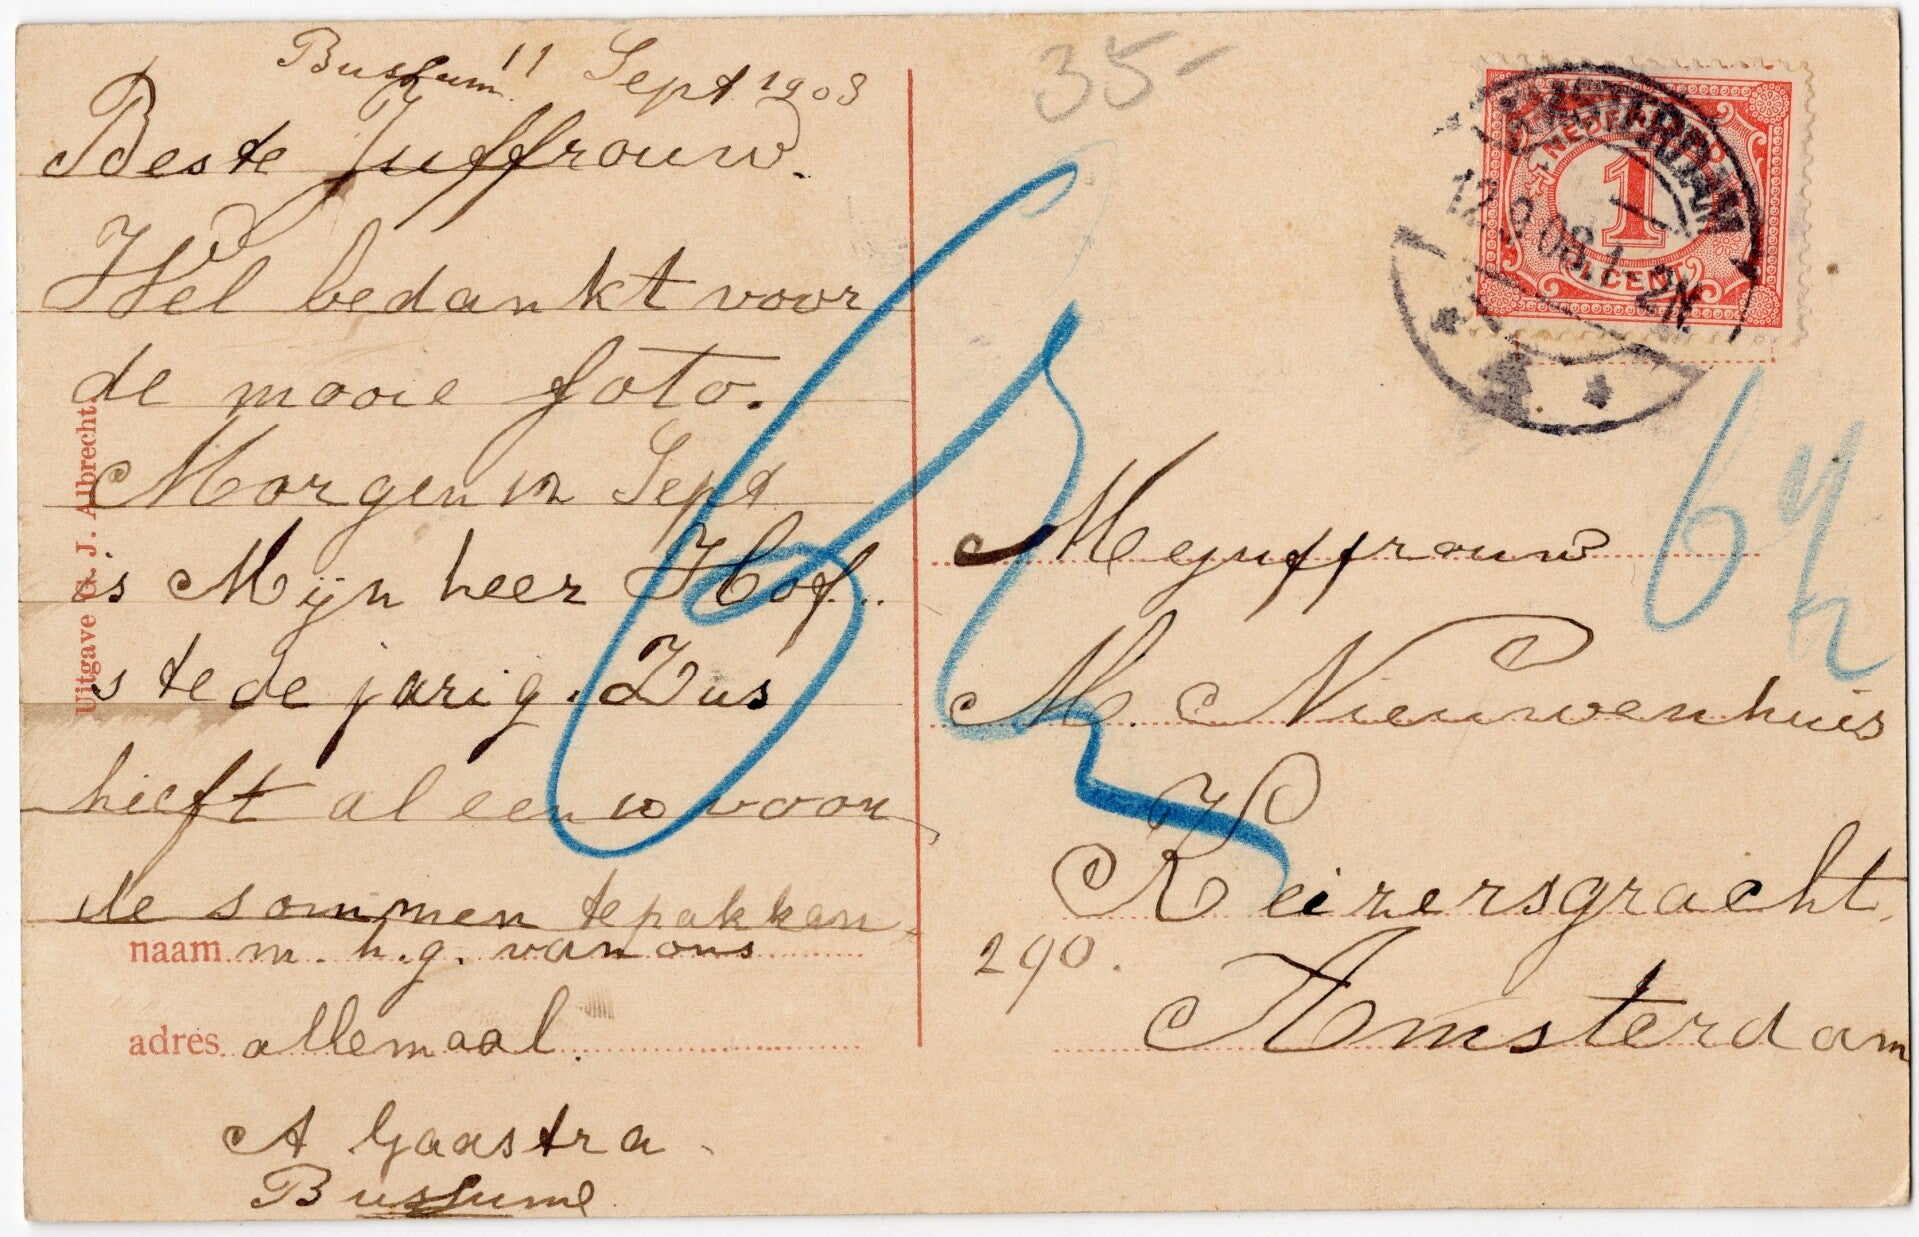 Bussum 11 Sept 1908
Beste Juffrouw.
Wel bedankt voor
de mooie foto.
Morgen 12 Sept
is Mijn heer Hof..
stede jarig. Zus
hieft al een 10 voor
de sommen te pakken.
naam m. h. g. van ons
adres allemaal.
A Gaastra
Bussum
Uitgave G. J. Albrecht.
35-
AMSTERDAM
12.9.08.1-2N.
NEDERLAND
1
CENT
6 1/2
Mejuffrouw
M. Nieuwenhuis
Keizersgracht
290.
Amsterdam